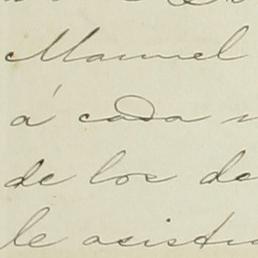 Manuel
á cada
de los de
le asistu